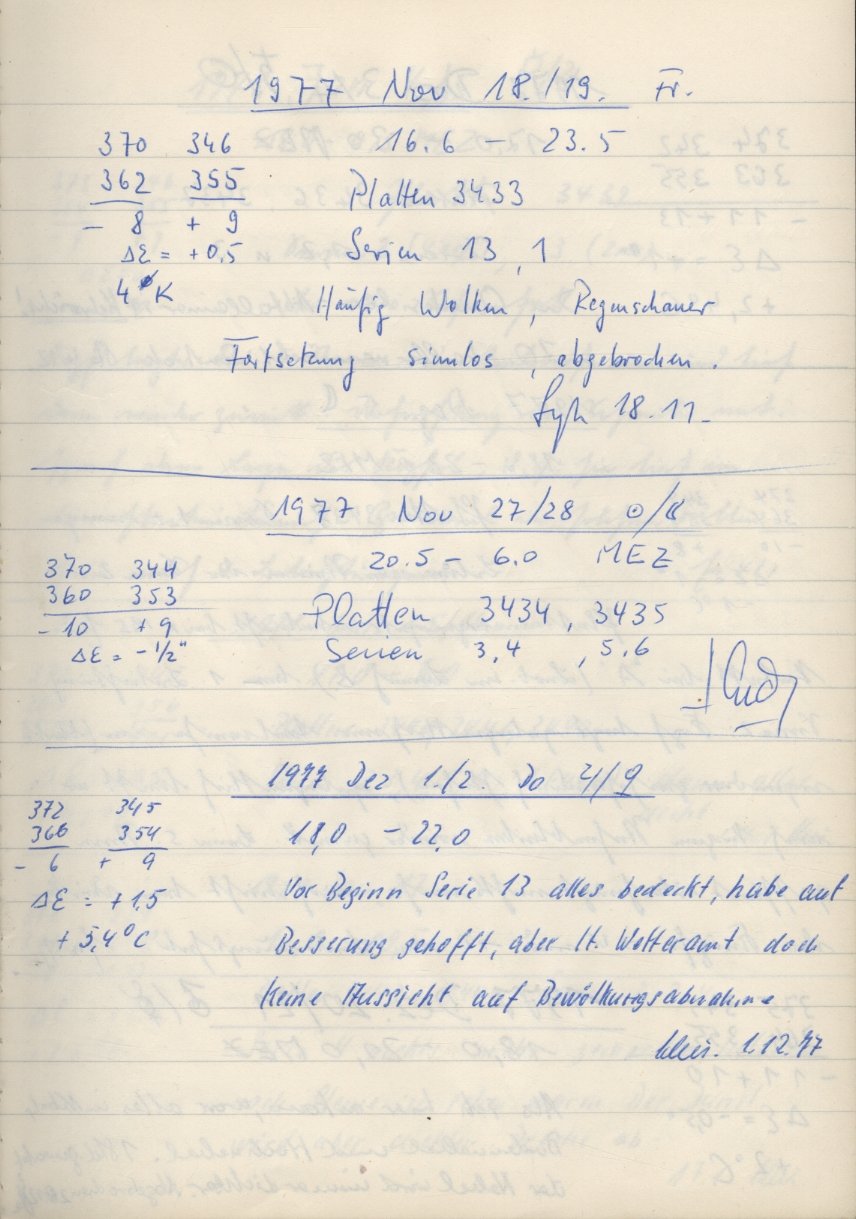 1977 Nov 18./19. Fr.
370 346 16.6 – 23.5
362 355 Platten 3433
– 8 + 9
Δε = +0,5 Serien 13, 1
4° K
Häufig Wolken, Regenschauer
Fortsetzung sinnlos, abgebrochen.
18.11.
1977 Nov 27/28 ☉/☾
20.5 – 6.0 MEZ
370 344
360 353 Platten 3434, 3435
– 10 + 9
Δε = – 1/2" Serien 3,4, 5,6
1977 Dez 1./2. Do ♃/♀
372 345
366 354 18,0 – 22,0
– 6 + 9
Δε = + 1.5 Vor Beginn Serie 13 alles bedeckt, habe auf
+ 5,4°C Besserung gehofft, aber lt. Wetteramt doch
keine Aussicht auf Bewölkungsabnahme
1.12.77